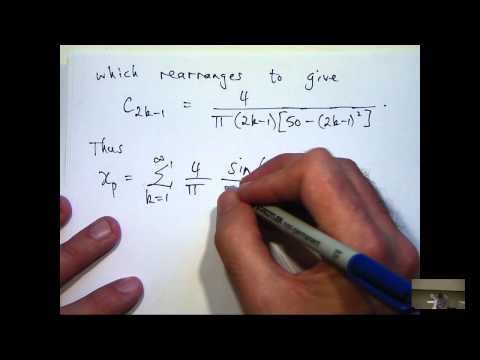 which rearranges to give
C₂ₖ₋₁ = 4 / π(2k-1)[50-(2k-1)²] .
Thus
xₚ = ∞ Σ k=1 4/π sin(